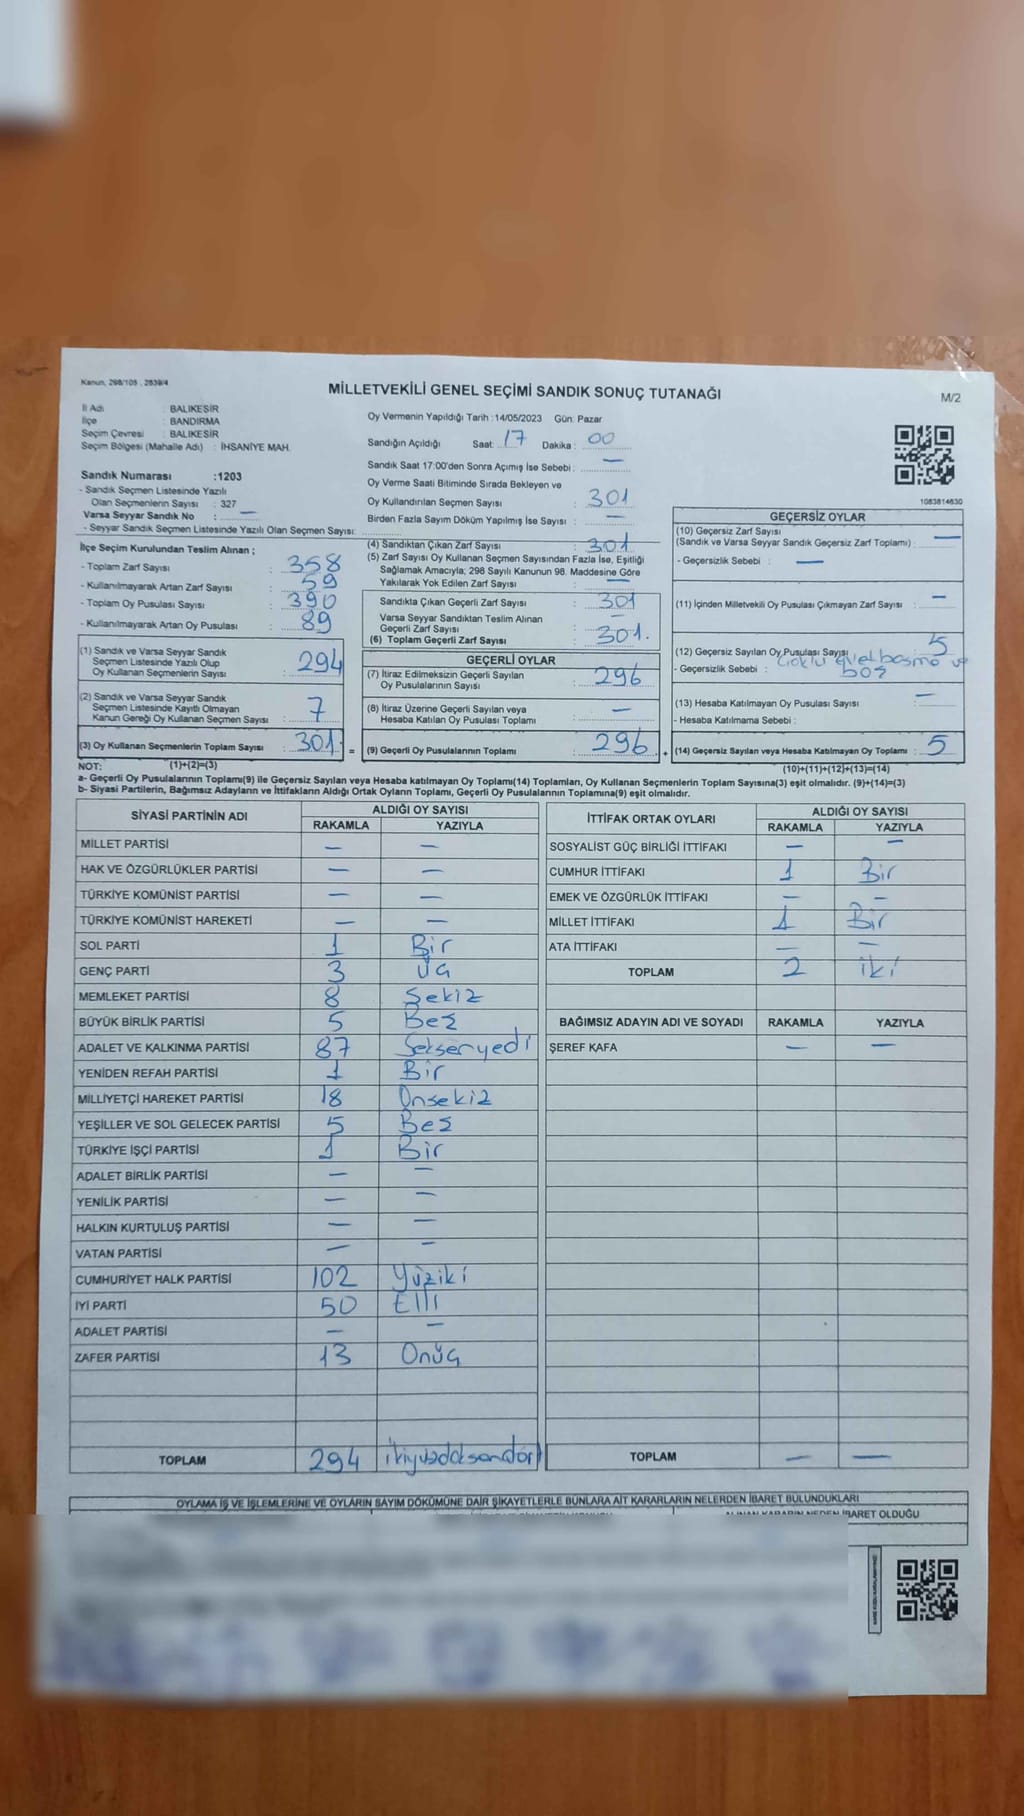 Kanun, 298/105 , 2839/4
MİLLETVEKİLİ GENEL SEÇİMİ SANDIK SONUÇ TUTANAĞI
M/2
İl Adı : BALIKESİR
İlçe : BANDIRMA
Seçim Çevresi : BALIKESİR
Seçim Bölgesi (Mahalle Adı) : İHSANİYE MAH.
Oy Vermenin Yapıldığı Tarih : 14/05/2023 Gün: Pazar
Sandığın Açıldığı Saat: 17 Dakika : 00
Sandık Saat 17:00'den Sonra Açımış İse Sebebi : —
Oy Verme Saati Bitiminde Sırada Bekleyen ve
Oy Kullandırılan Seçmen Sayısı : 301
Birden Fazla Sayım Döküm Yapılmış İse Sayısı : —
1083814630
Sandık Numarası :1203
- Sandık Seçmen Listesinde Yazılı
Olan Seçmenlerin Sayısı : 327
Varsa Seyyar Sandık No : —
- Seyyar Sandık Seçmen Listesinde Yazılı Olan Seçmen Sayısı:
İlçe Seçim Kurulundan Teslim Alınan ;
- Toplam Zarf Sayısı : 358
- Kullanılmayarak Artan Zarf Sayısı : 59
- Toplam Oy Pusulası Sayısı : 390
- Kullanılmayarak Artan Oy Pusulası : 89
(1) Sandık ve Varsa Seyyar Sandık
Seçmen Listesinde Yazılı Olup
Oy Kullanan Seçmenlerin Sayısı : 294
(2) Sandık ve Varsa Seyyar Sandık
Seçmen Listesinde Kayıtlı Olmayan
Kanun Gereği Oy Kullanan Seçmen Sayısı : 7
(3) Oy Kullanan Seçmenlerin Toplam Sayısı : 301
(1)+(2)=(3)
(4) Sandıktan Çıkan Zarf Sayısı : 301
(5) Zarf Sayısı Oy Kullanan Seçmen Sayısından Fazla İse, Eşitliği
Sağlamak Amacıyla; 298 Sayılı Kanunun 98. Maddesine Göre
Yakılarak Yok Edilen Zarf Sayısı : —
Sandıkta Çıkan Geçerli Zarf Sayısı : 301
Varsa Seyyar Sandıktan Teslim Alınan
Geçerli Zarf Sayısı : —
(6) Toplam Geçerli Zarf Sayısı : 301.
GEÇERLİ OYLAR
(7) İtiraz Edilmeksizin Geçerli Sayılan
Oy Pusulalarının Sayısı : 296
(8) İtiraz Üzerine Geçerli Sayılan veya
Hesaba Katılan Oy Pusulası Toplamı : —
= (9) Geçerli Oy Pusulalarının Toplamı : 296 +
GEÇERSİZ OYLAR
(10) Geçersiz Zarf Sayısı
(Sandık ve Varsa Seyyar Sandık Geçersiz Zarf Toplamı) : —
- Geçersizlik Sebebi : —
(11) İçinden Milletvekili Oy Pusulası Çıkmayan Zarf Sayısı : —
(12) Geçersiz Sayılan Oy Pusulası Sayısı : 5
- Geçersizlik Sebebi : Çoklu evet basma ve
boş
(13) Hesaba Katılmayan Oy Pusulası Sayısı : —
- Hesaba Katılmama Sebebi :
(14) Geçersiz Sayılan veya Hesaba Katılmayan Oy Toplamı : 5
(10)+(11)+(12)+(13)=(14)
NOT:
a- Geçerli Oy Pusulalarının Toplamı(9) ile Geçersiz Sayılan veya Hesaba katılmayan Oy Toplamı(14) Toplamları, Oy Kullanan Seçmenlerin Toplam Sayısına(3) eşit olmalıdır. (9)+(14)=(3)
b- Siyasi Partilerin, Bağımsız Adayların ve İttifakların Aldığı Ortak Oyların Toplamı, Geçerli Oy Pusulalarının Toplamına(9) eşit olmalıdır.
SİYASİ PARTİNİN ADI ALDIĞI OY SAYISI
RAKAMLA YAZIYLA
MİLLET PARTİSİ — —
HAK VE ÖZGÜRLÜKLER PARTİSİ — —
TÜRKİYE KOMÜNİST PARTİSİ — —
TÜRKİYE KOMÜNİST HAREKETİ — —
SOL PARTİ 1 Bir
GENÇ PARTİ 3 Üç
MEMLEKET PARTİSİ 8 Sekiz
BÜYÜK BİRLİK PARTİSİ 5 Beş
ADALET VE KALKINMA PARTİSİ 87 Seksenyedi
YENİDEN REFAH PARTİSİ 1 Bir
MİLLİYETÇİ HAREKET PARTİSİ 18 Onsekiz
YEŞİLLER VE SOL GELECEK PARTİSİ 5 Beş
TÜRKİYE İŞÇİ PARTİSİ 1 Bir
ADALET BİRLİK PARTİSİ — —
YENİLİK PARTİSİ — —
HALKIN KURTULUŞ PARTİSİ — —
VATAN PARTİSİ — —
CUMHURİYET HALK PARTİSİ 102 Yüziki
İYİ PARTİ 50 Elli
ADALET PARTİSİ — —
ZAFER PARTİSİ 13 Onüç
TOPLAM 294 ikiyüzdoksandört
İTTİFAK ORTAK OYLARI ALDIĞI OY SAYISI
RAKAMLA YAZIYLA
SOSYALİST GÜÇ BİRLİĞİ İTTİFAKI — —
CUMHUR İTTİFAKI 1 Bir
EMEK VE ÖZGÜRLÜK İTTİFAKI — —
MİLLET İTTİFAKI 1 Bir
ATA İTTİFAKI — —
TOPLAM 2 iki
BAĞIMSIZ ADAYIN ADI VE SOYADI RAKAMLA YAZIYLA
ŞEREF KAFA — —
TOPLAM — —
OYLAMA İŞ VE İŞLEMLERİNE VE OYLARIN SAYIM DÖKÜMÜNE DAİR ŞİKAYETLERLE BUNLARA AİT KARARLARIN NELERDEN İBARET BULUNDUKLARI
ALINAN KARARIN NEDEN İBARET OLDUĞU